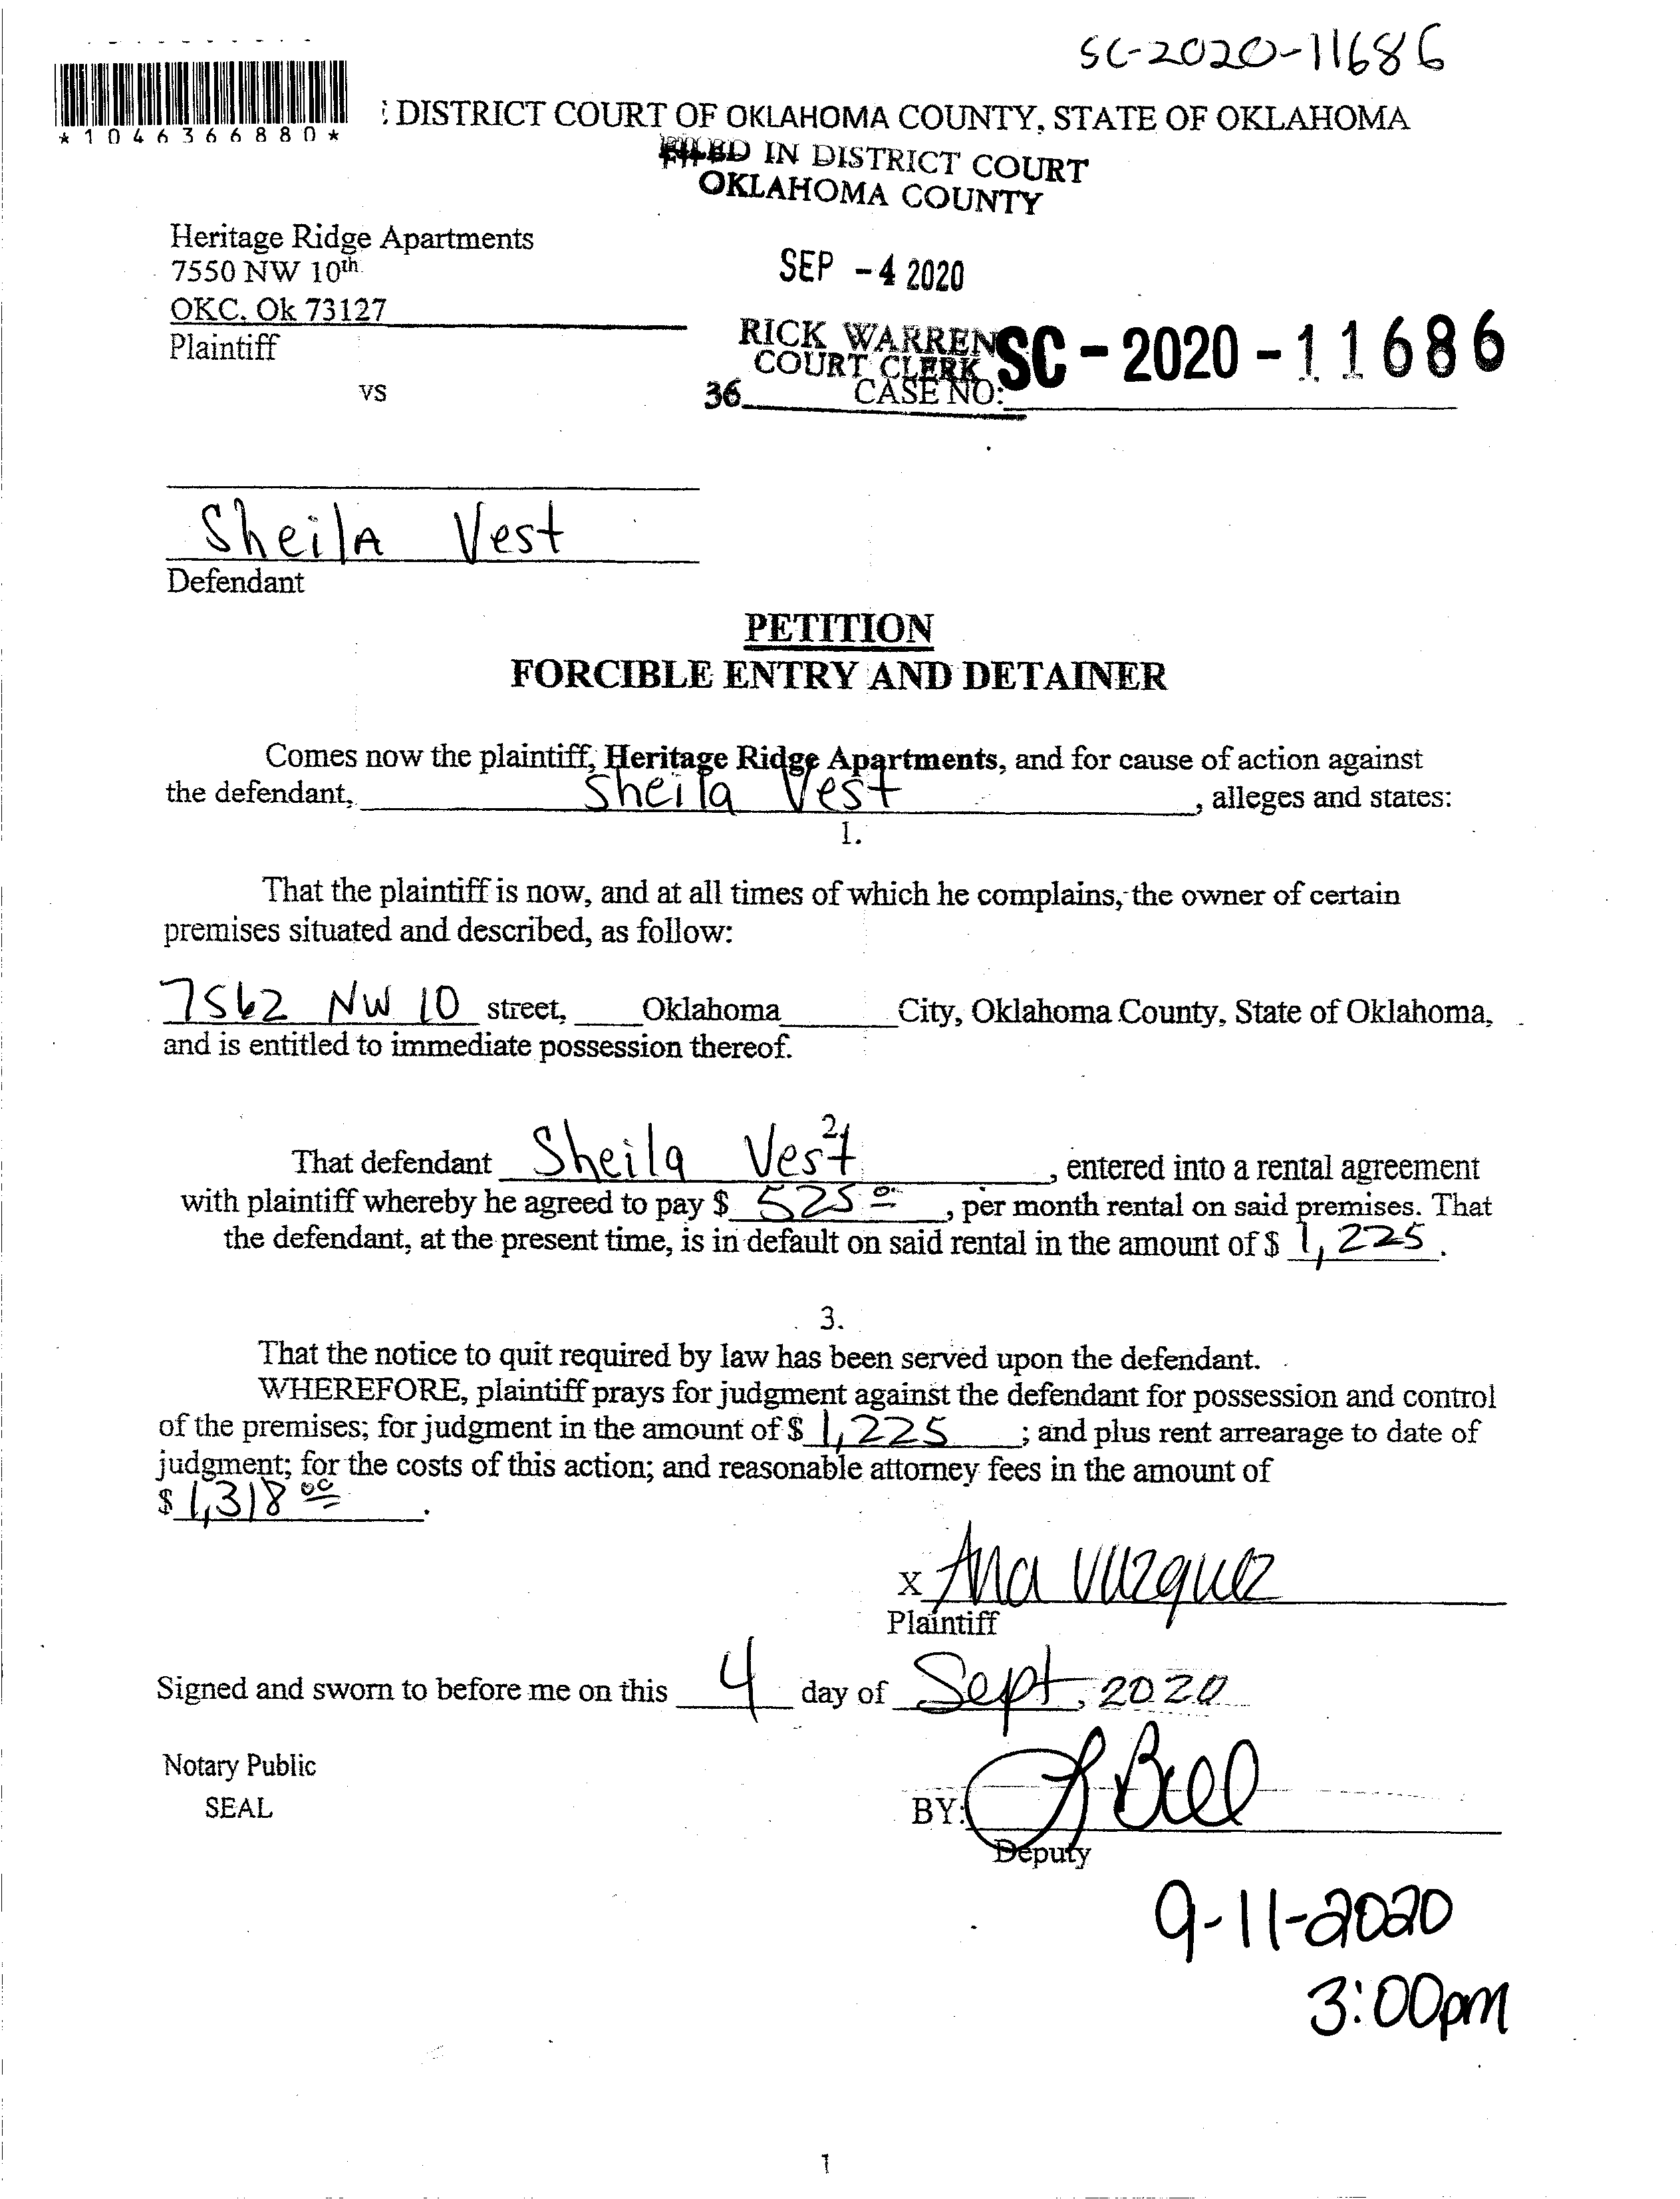 SC-2020-11686
*1046366880*
: DISTRICT COURT OF OKLAHOMA COUNTY, STATE OF OKLAHOMA
FILED IN DISTRICT COURT
OKLAHOMA COUNTY
Heritage Ridge Apartments
7550 NW 10th
OKC, Ok 73127
Plaintiff
SEP -4 2020
RICK WARREN
COURT CLERK
SC-2020-11686
vs
36 CASE NO:
Sheila Vest
Defendant
PETITION
FORCIBLE ENTRY AND DETAINER
Comes now the plaintiff, Heritage Ridge Apartments, and for cause of action against
the defendant, Sheila Vest, alleges and states:
1.
That the plaintiff is now, and at all times of which he complains, the owner of certain
premises situated and described, as follow:
7562 NW 10 street, Oklahoma City, Oklahoma County, State of Oklahoma,
and is entitled to immediate possession thereof.
2.
That defendant Sheila Vest, entered into a rental agreement
with plaintiff whereby he agreed to pay $ 525 00, per month rental on said premises. That
the defendant, at the present time, is in default on said rental in the amount of $ 1,225.
3.
That the notice to quit required by law has been served upon the defendant.
WHEREFORE, plaintiff prays for judgment against the defendant for possession and control
of the premises; for judgment in the amount of $ 1,225; and plus rent arrearage to date of
judgment; for the costs of this action; and reasonable attorney fees in the amount of
$ 1,318 00.
x Ana Vazquez
Plaintiff
Signed and sworn to before me on this 4 day of Sept, 2020
Notary Public
SEAL
BY: L Bell
Deputy
9-11-2020
3:00pm
1